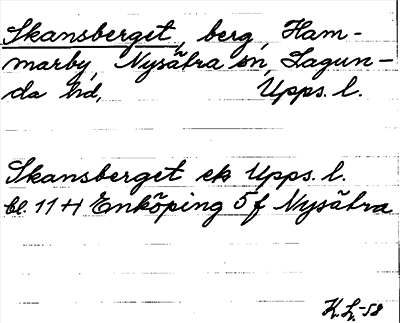 Skansberget, berg, Ham-
marby, Nysätra sn, Lagun-
da hd, Upps. l.
Skansberget ek Upps. l.
bl. 11 H Enköping 5 f Nysätra
K. L. -58